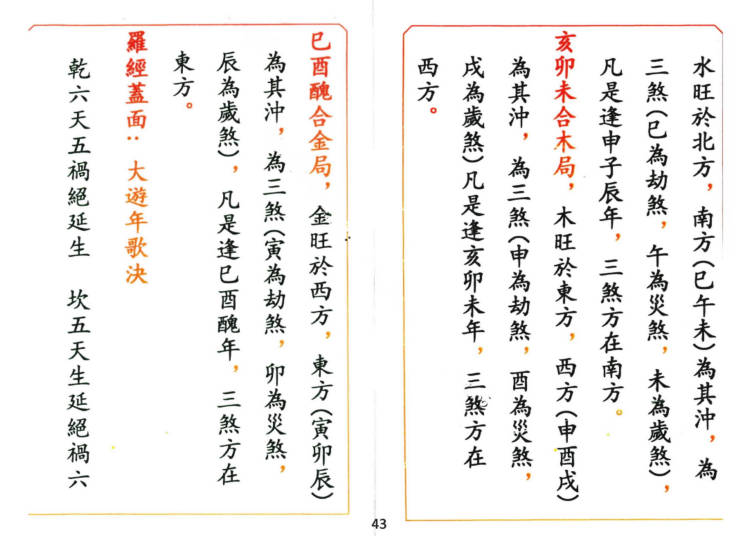 水旺於北方，南方(巳午未)為其沖，為
三煞(巳為劫煞，午為災煞，未為歲煞)，
凡是逢申子辰年，三煞方在南方。
亥卯未合木局，木旺於東方，西方(申酉戌)
為其沖，為三煞(申為劫煞，酉為災煞，
戌為歲煞)凡是逢亥卯未年，三煞方在
西方。
巳酉醜合金局，金旺於西方，東方(寅卯辰)
為其沖，為三煞(寅為劫煞，卯為災煞，
辰為歲煞)，凡是逢巳酉醜年，三煞方在
東方。
羅經蓋面：大遊年歌決
乾六天五禍絕延生　坎五天生延絕禍六
43